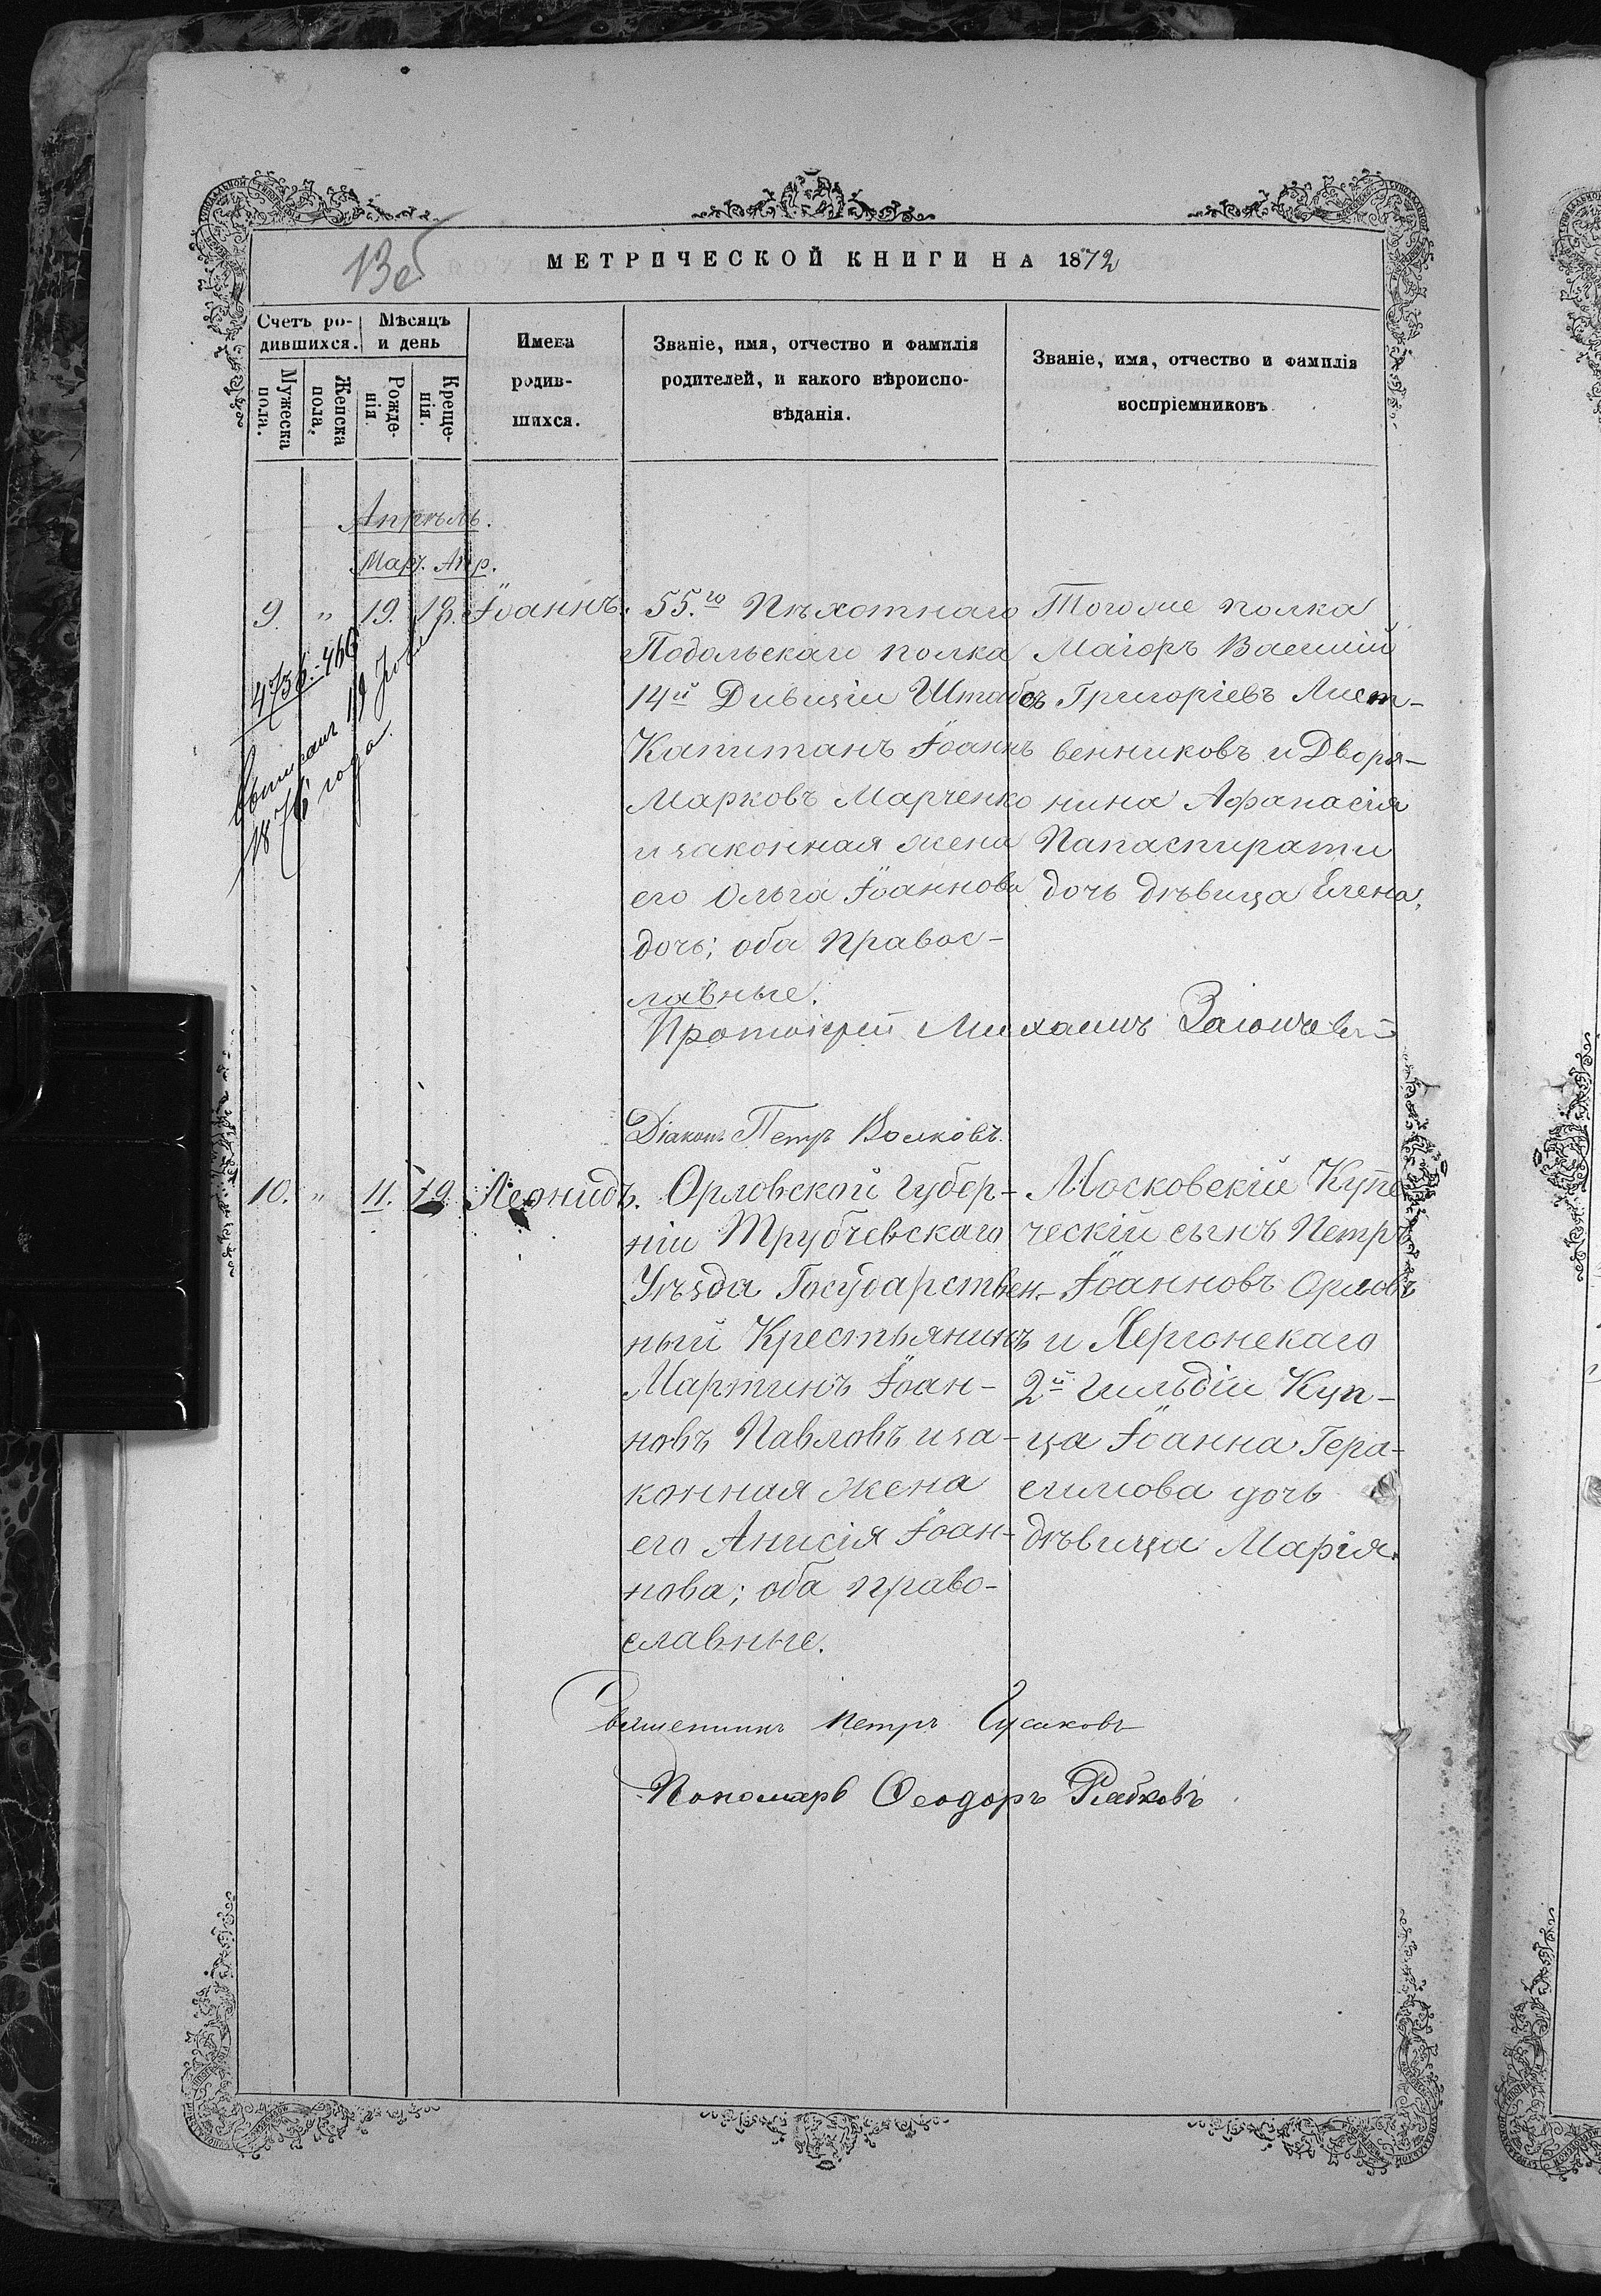 13 об
МЕТРИЧЕСКОЙ КНИГИ НА 1872
Счетъ ро-
дившихся.
Мужеска
пола.
Женска
пола.
Мѣсяцъ
и день
Рожде-
нія.
Креще-
нія.
Имена
родив-
шихся.
Званіе, имя, отчество и фамилія
родителей, и какого вѣроиспо-
вѣданія.
Званіе, имя, отчество и фамилія
воспріемниковъ.
Апрѣль.
Мар. Апр.
9. " 19. 18. Іоаннъ.
1876 года
55.го Пѣхотнаго
Подольскаго полка
14й Дивизіи Штабсъ
Капитанъ Іоаннъ
Марковъ Марченко
и законная жена
его Ольга Іоаннова
дочь; оба правос-
лавные.
Тогоже полка
Маіоръ Василій
Григоріевъ Лист-
венниковъ и Дворя-
нина Афанасія
Папаспирати
дочь дѣвица Елена.
Протоіерей Михаилъ
Діаконъ Петръ Волковъ.
10. " 11. 19. Леонидъ.
Орловской Губер-
ніи Трубчевскаго
Уѣзда Государствен-
ный Крестьянинъ
Мартинъ Іоан-
новъ Павловъ и за-
конная жена
его Анисія Іоан-
нова; оба право-
славные.
Московскій Купе
ческій сынъ Петръ
Іоанновъ Орловъ
и Херсонскаго
2й гильдіи Куп-
ца Іоанна Гера-
симова дочь
дѣвица Марія.
Священникъ Петръ Гусаковъ
Пономарь Ѳеодоръ Рябковъ